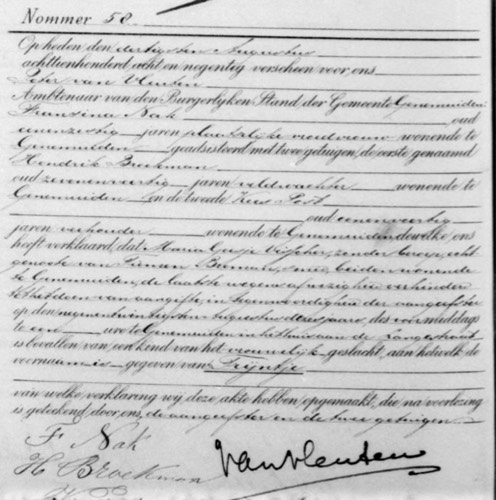 Nommer 58.
Op heden den dertigsten Augustus
achttienhonderd acht en negentig verscheen voor ons
Peter van Vleuten
Ambtenaar van den Burgerlyken Stand der Gemeente Genemuiden:
Fransina Nak oud
eenenzestig jaren plaatselijke vroedvrouw wonende te
Genemuiden geadsisteerd met twee getuigen, de eerste genaamd
Hendrik Broekman
oud zevenenveertig jaren veldwachter wonende te
Genemuiden en de tweede Kees Post
oud eenenveertig
jaren verhooder wonende te Genemuiden dewelke ons
heeft verklaard, dat Maria Geesje Visscher, zonder beroep, echt-
genoote van Bosman, beiden wonende
te Genemuiden, de laatste wegens afwezigheid verhinderd
tot het doen van aangifte, in tegenwoordigheid der aangeefster
op den negenentwintigsten Augustus dezes jaars, des voormiddags
te een ure te Genemuiden in het huis aan de Langestraat
is bevallen van een kind van het vrouwelijk geslacht, aan hetwelk de
voornaam is gegeven van Trijntje
van welke verklaring wij deze akte hebben opgemaakt, die na voorlezing
is geteekend door ons, de aangeefster en de twee getuigen.
F Nak
H Broekman van Vleuten